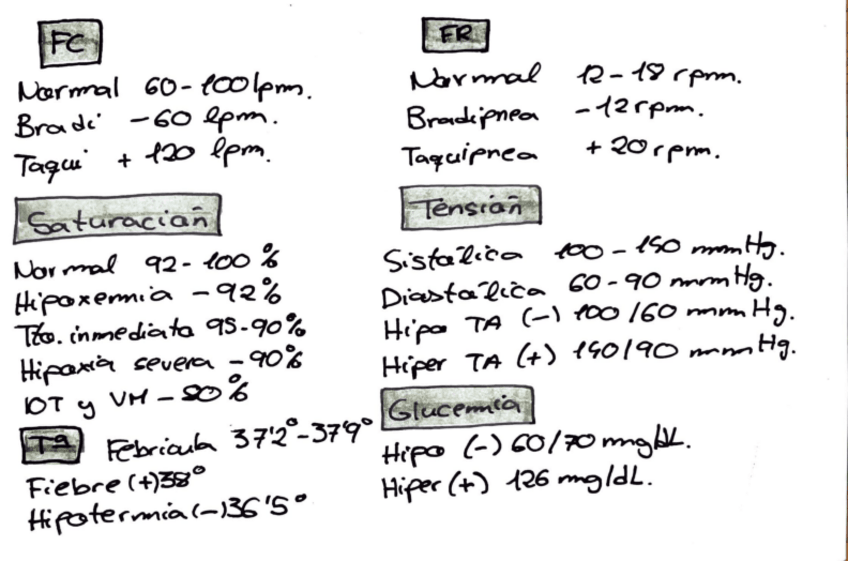 FC
Normal 60-100 lpm.
Bradi -60 lpm.
Taqui + 120 lpm.
Saturación
Normal 92-100%
Hipoxemia -92%
Tto. inmediato 95-90%
Hipoxia severa -90%
IOT y VM -80%
Tª Febrícula 37'2°-37'9°
Fiebre (+)38°
Hipotermia (-)36'5°
FR
Normal 12-18 rpm.
Bradipnea -12 rpm.
Taquipnea +20 rpm.
Tensión
Sistólica 100-150 mmHg.
Diastólica 60-90 mmHg.
Hipo TA (-) 100/60 mmHg.
Hiper TA (+) 140/90 mmHg.
Glucemia
Hipo (-) 60/70 mg/dL.
Hiper (+) 126 mg/dL.